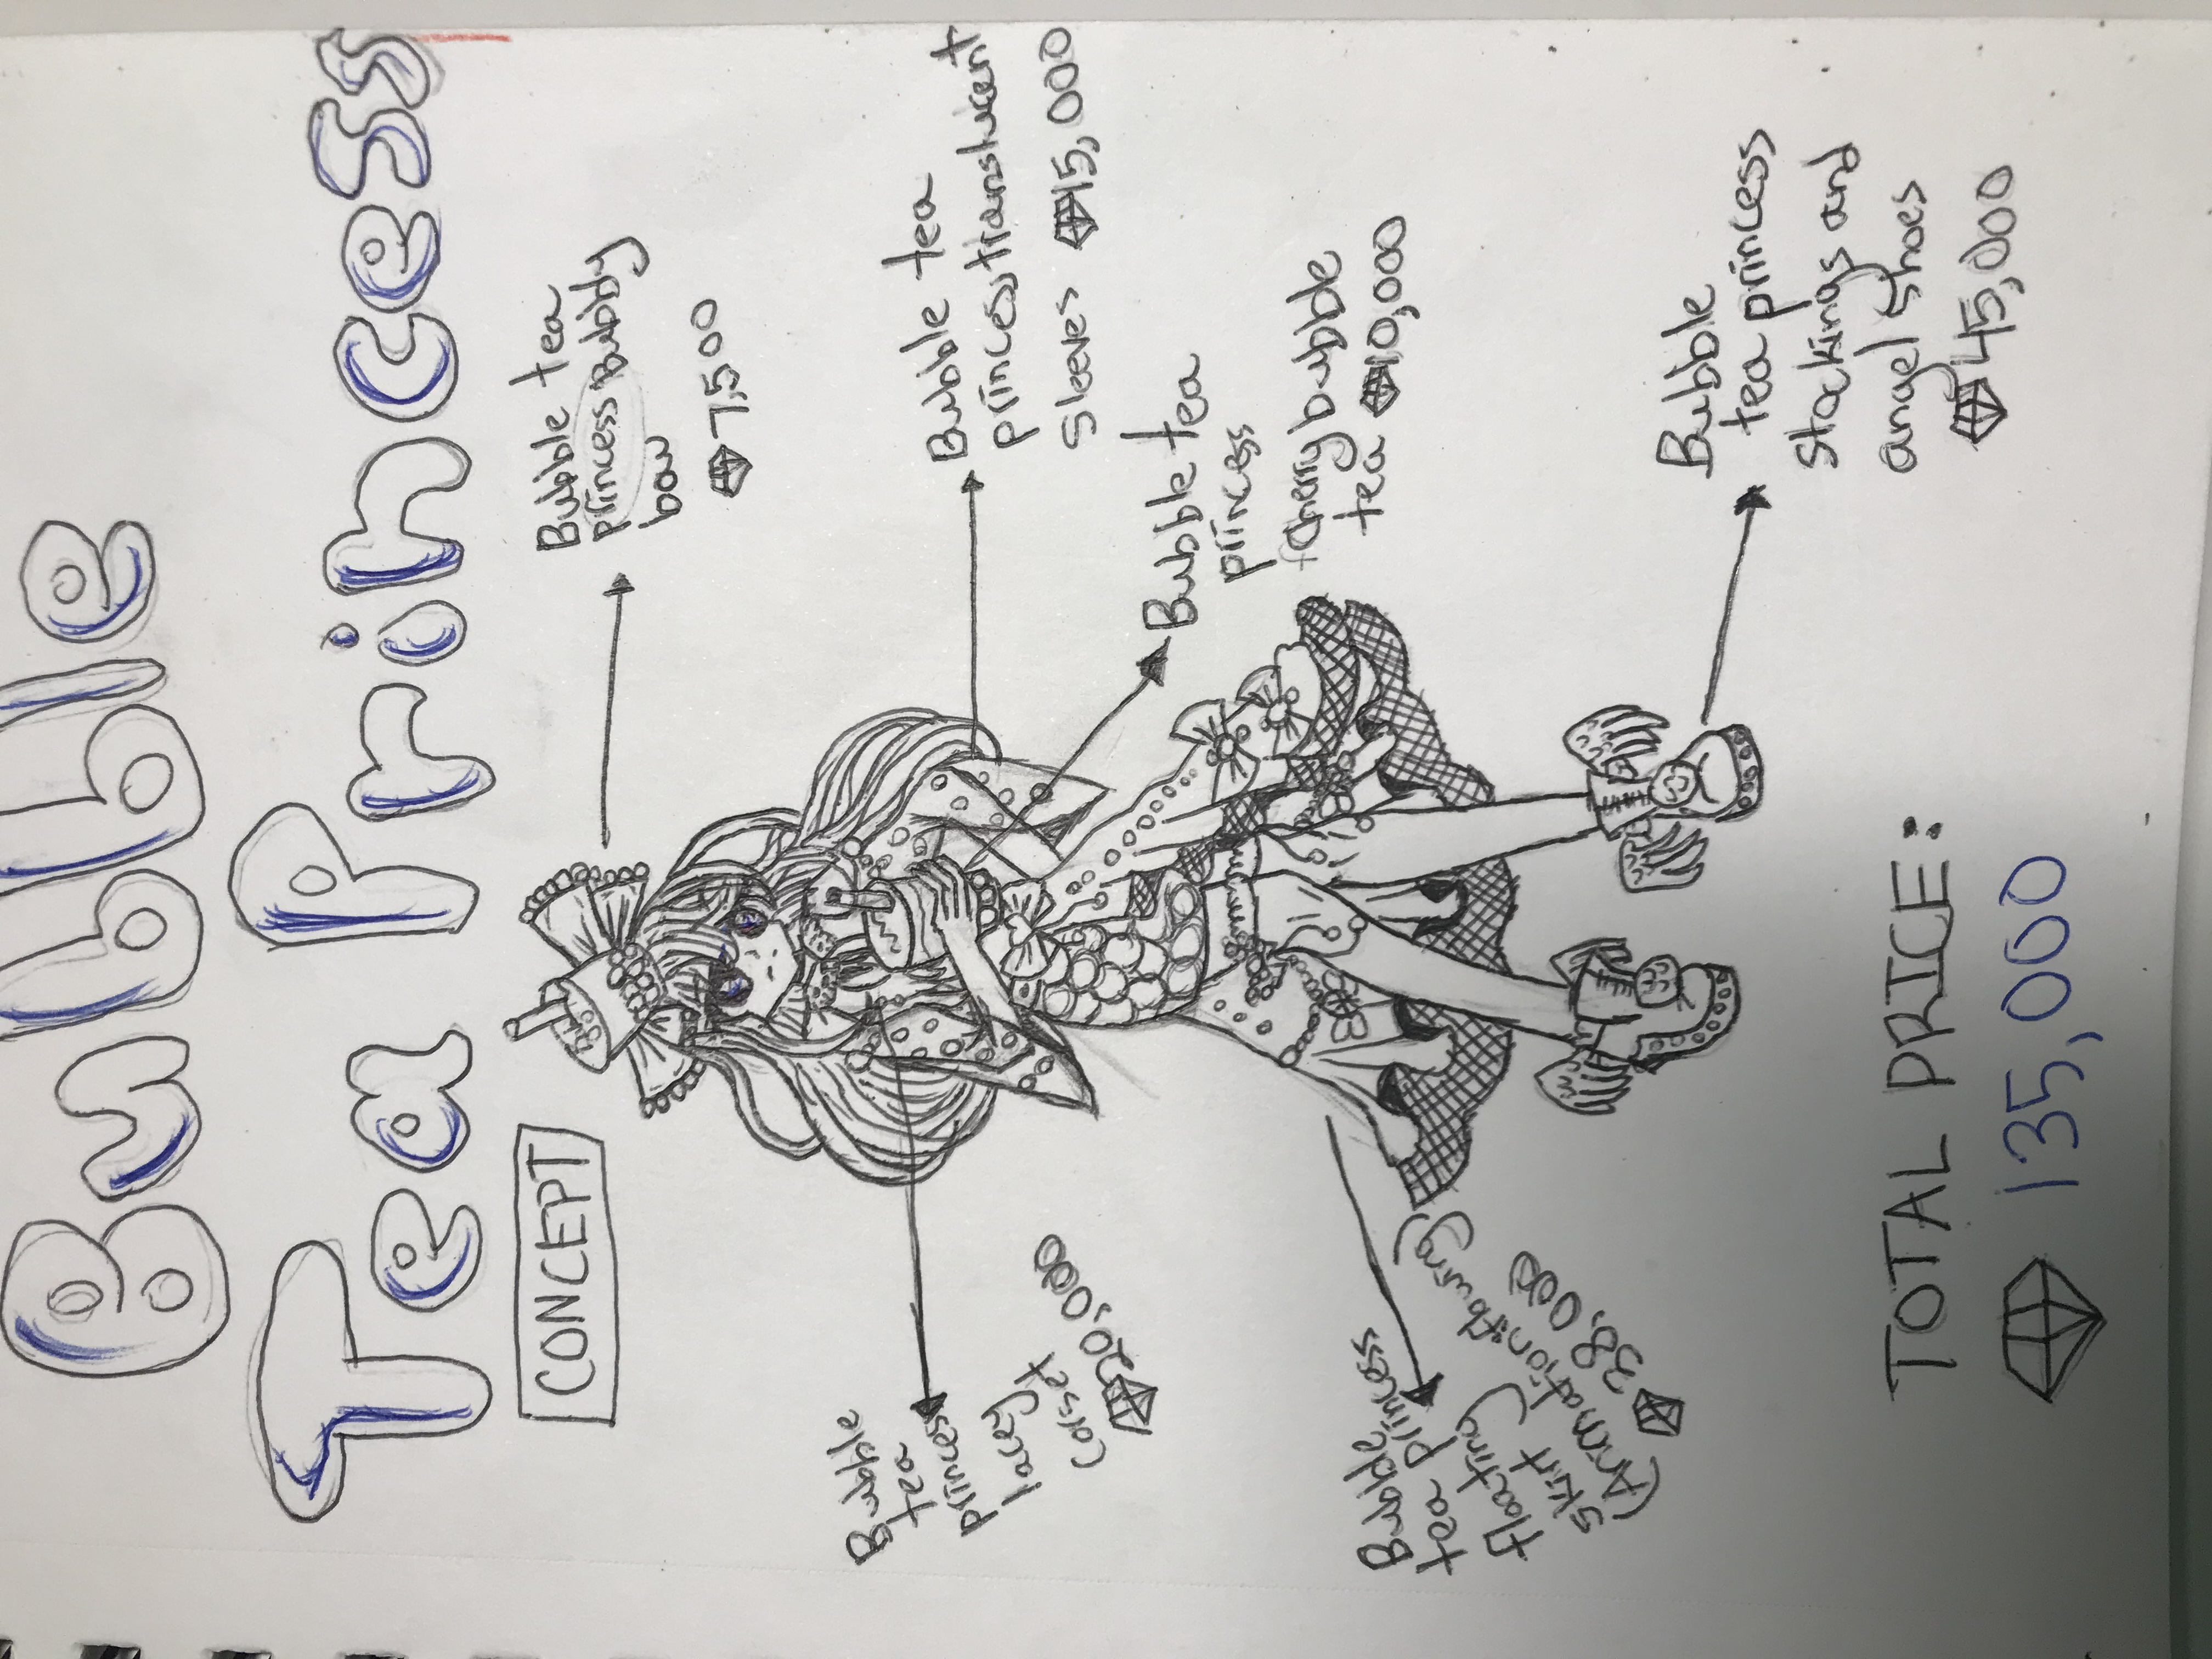 Bubble
Tea Princess
CONCEPT
Bubble tea
princess Bubbly
bow
7,500
Bubble tea
princess translucent
sleeves 15,000
Bubble tea
princess
cherry bubble
tea 10,000
Bubble
tea princess
stockings and
angel shoes
45,000
Bubble
tea
princess
lacey
corset
20,000
Bubble
tea princess
Floating
skirt
(Animation: flowing)
38,000
TOTAL PRICE:
135,000